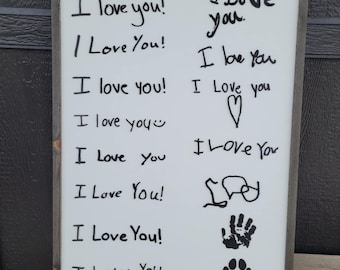 I love you!
I Love You!
I love you!
I love you
I Love you
I Love You!
I Love You!
I Love You
I Love
you.
I love You
I Love you
I LOVE You
I